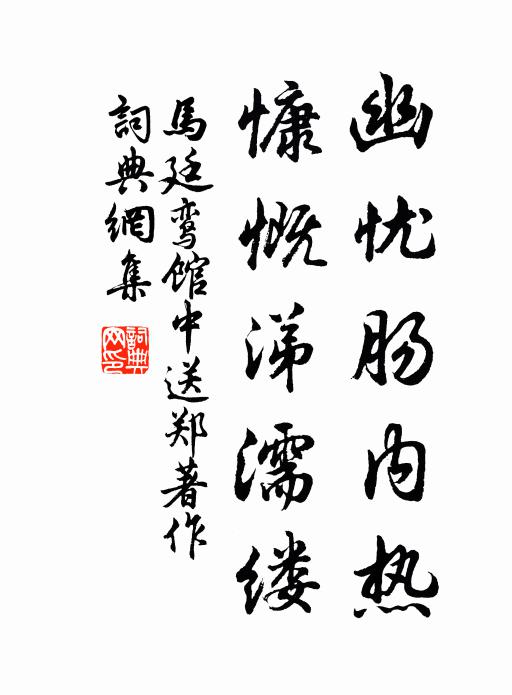 幽忧肠内热
慷慨涕濡缕
馬廷鸾館中送郑著作
詞典網集
詞典網印